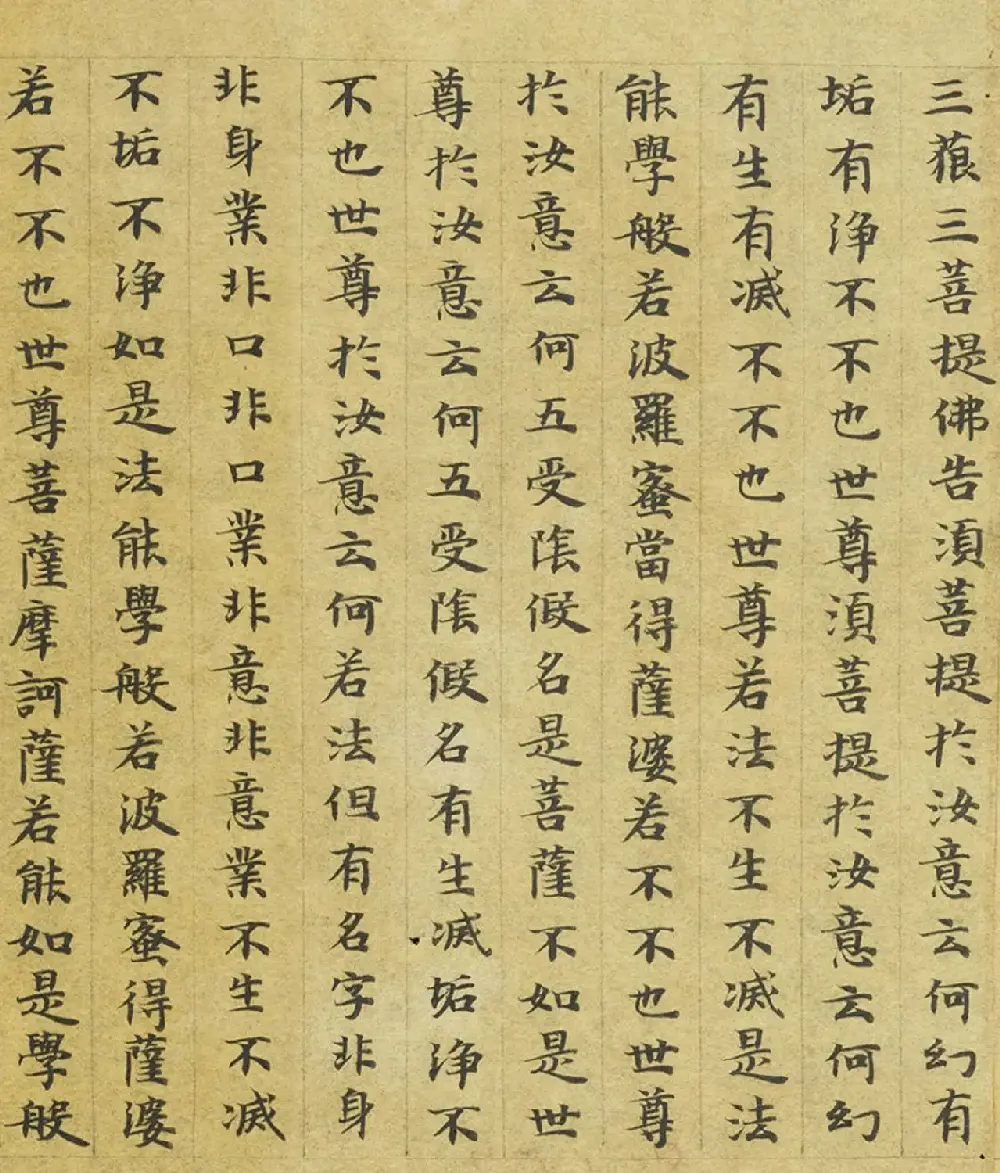 三藐三菩提佛告湏菩提於汝意云何幻有
垢有淨不不也世尊湏菩提於汝意云何幻
有生有滅不不也世尊若法不生不滅是法
能學般若波羅蜜當得薩婆若不不也世尊
於汝意云何五受陰假名是菩薩不如是世
尊於汝意云何五受陰假名有生滅垢淨不
不也世尊於汝意云何若法但有名字非身
非身業非口非口業非意非意業不生不滅
不垢不淨如是法能學般若波羅蜜得薩婆
若不不也世尊菩薩摩訶薩若能如是學般